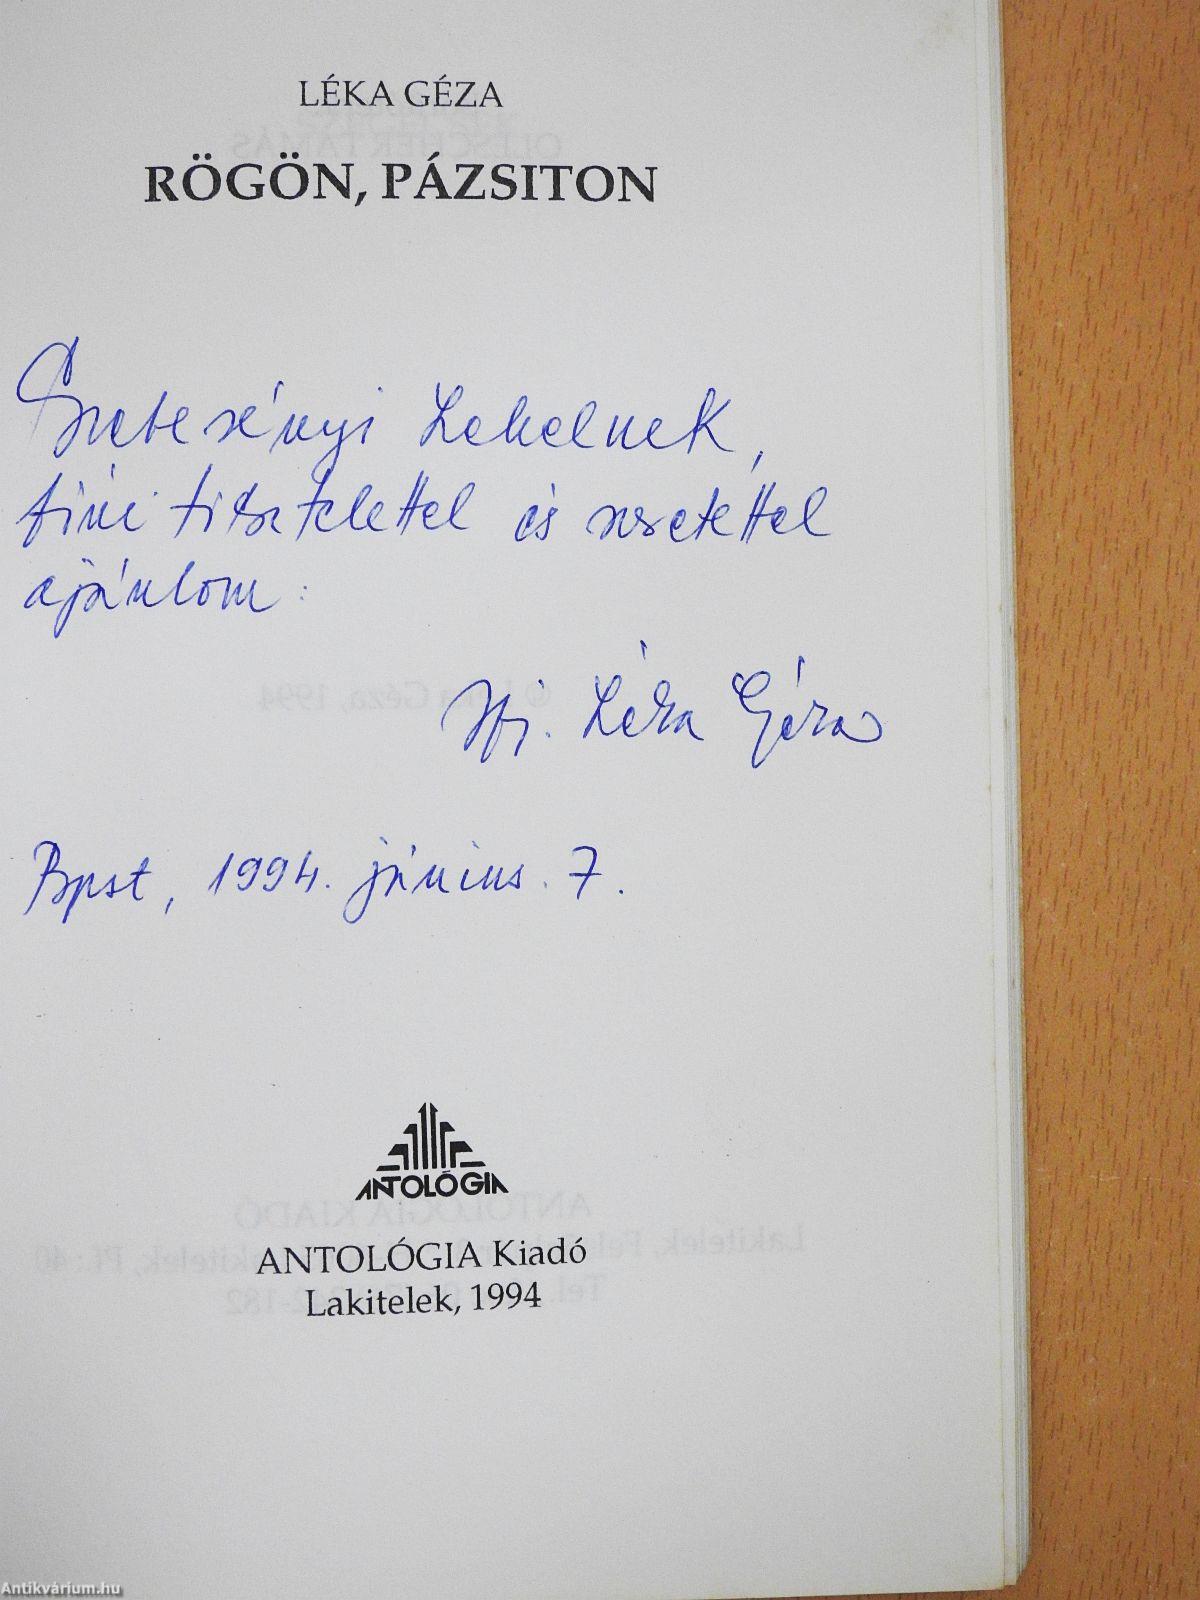 LÉKA GÉZA
RÖGÖN, PÁZSITON
Lehelnek,
tisztelettel és szeretettel
ajánlom:
ifj. Léka Géza
Bpst, 1994. június. 7.
ANTOLÓGIA
ANTOLÓGIA Kiadó
Lakitelek, 1994
Antikvárium.hu